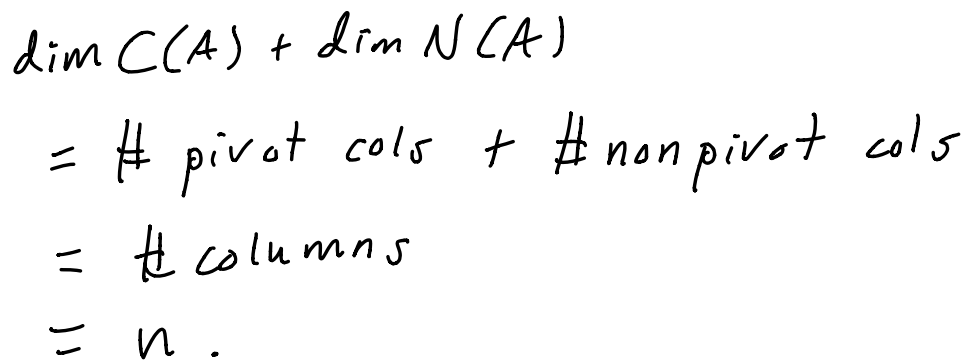 dim C(A) + dim N(A)
= # pivot cols + # nonpivot cols
= # columns
= n.